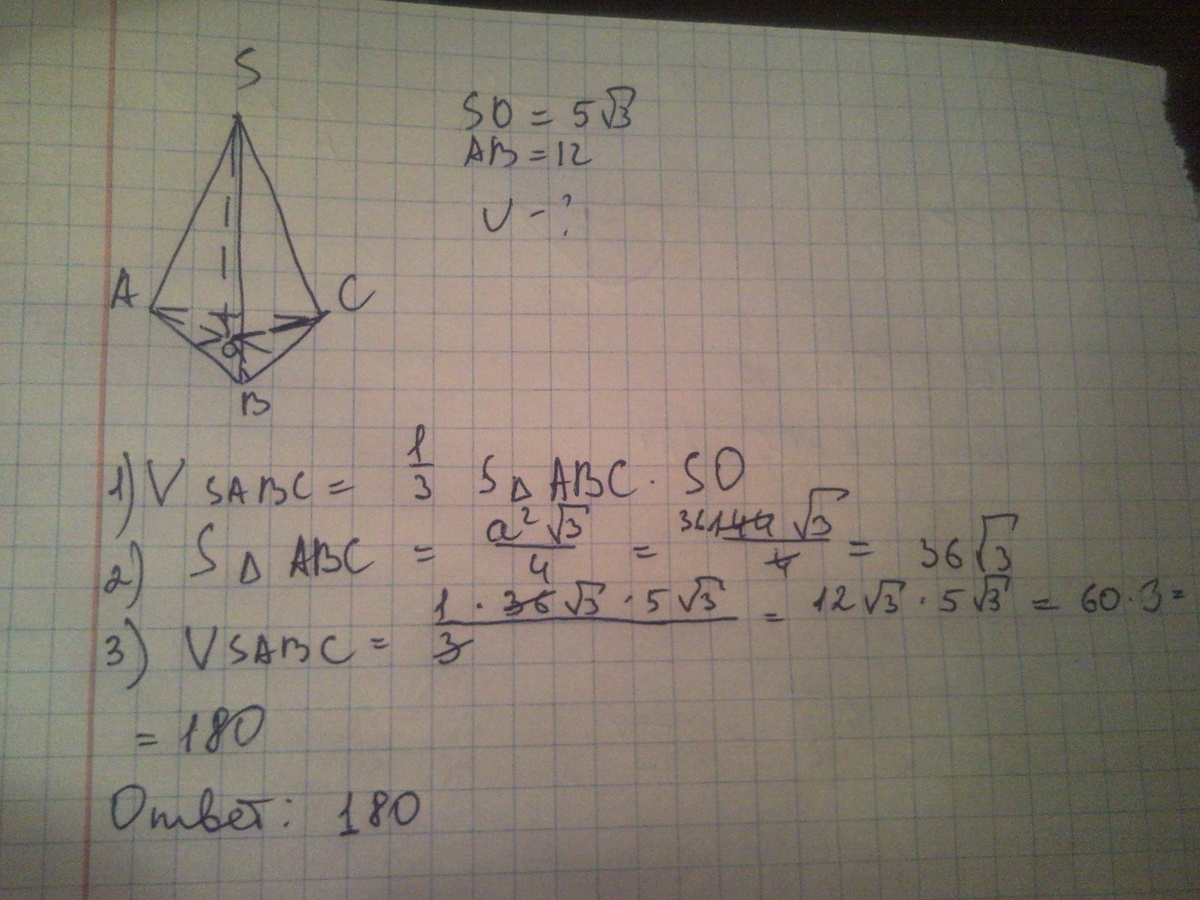 S
SO = 5√3
AB = 12
V - ?
A
C
O
B
1) V SABC = 1/3 S△ABC · SO
2) S△ABC = a²√3/4 = 36 144√3/4 = 36√3
3) VSABC = 1 · 36√3 · 5√3/3 = 12√3 · 5√3 = 60 · 3 =
= 180
Ответ: 180